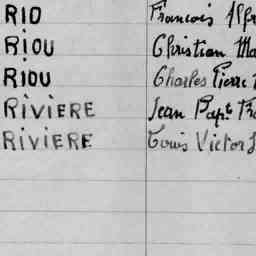 RIO François Alfr
RIOU Christian Ma
RIOU Charles Pierre
RIVIERE Jean Bapt Fra
RIVIERE Louis Victor